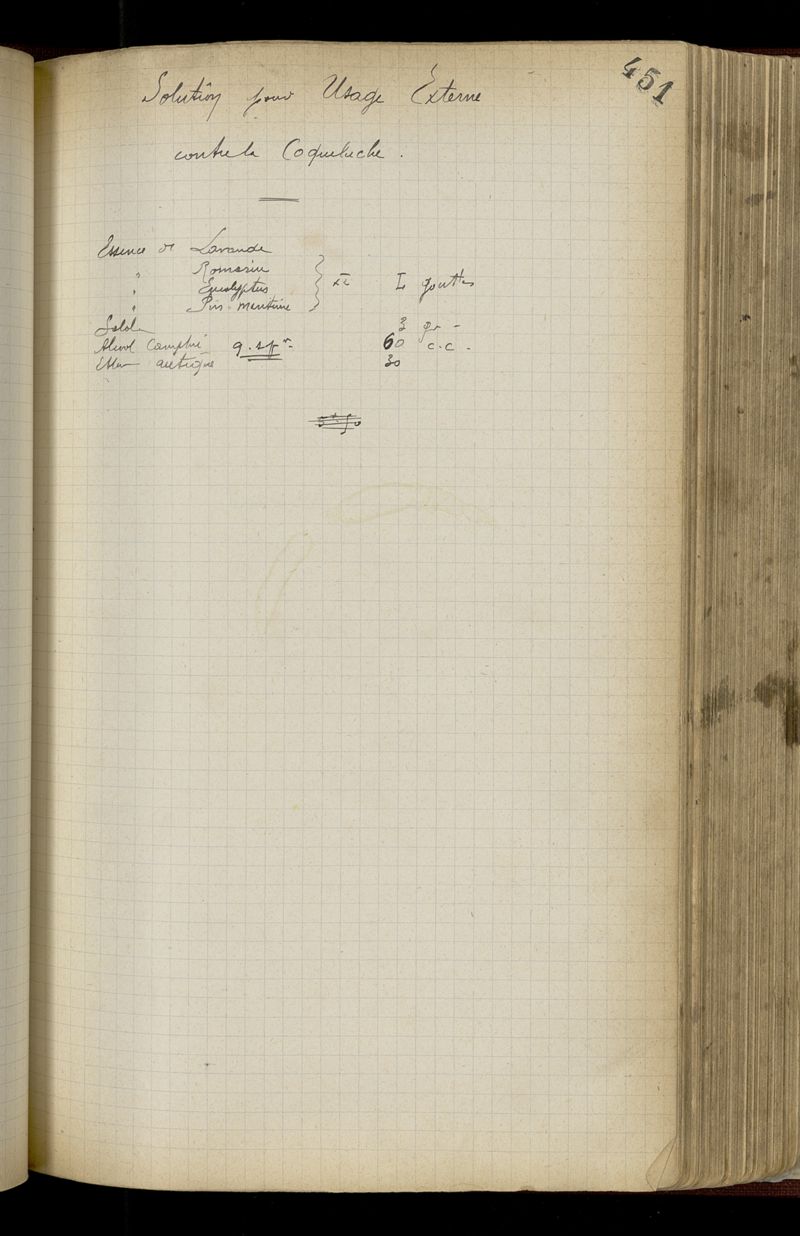 451
Solution pour Usage Externe
contre la Coqueluche.
Essence de Lavande
" Romarin
" Eucalyptus } L gouttes
" Pin maritime
Salol 3 gr
Alcool Camphré q.s.pr 60 c.c.
Ether acétique 30